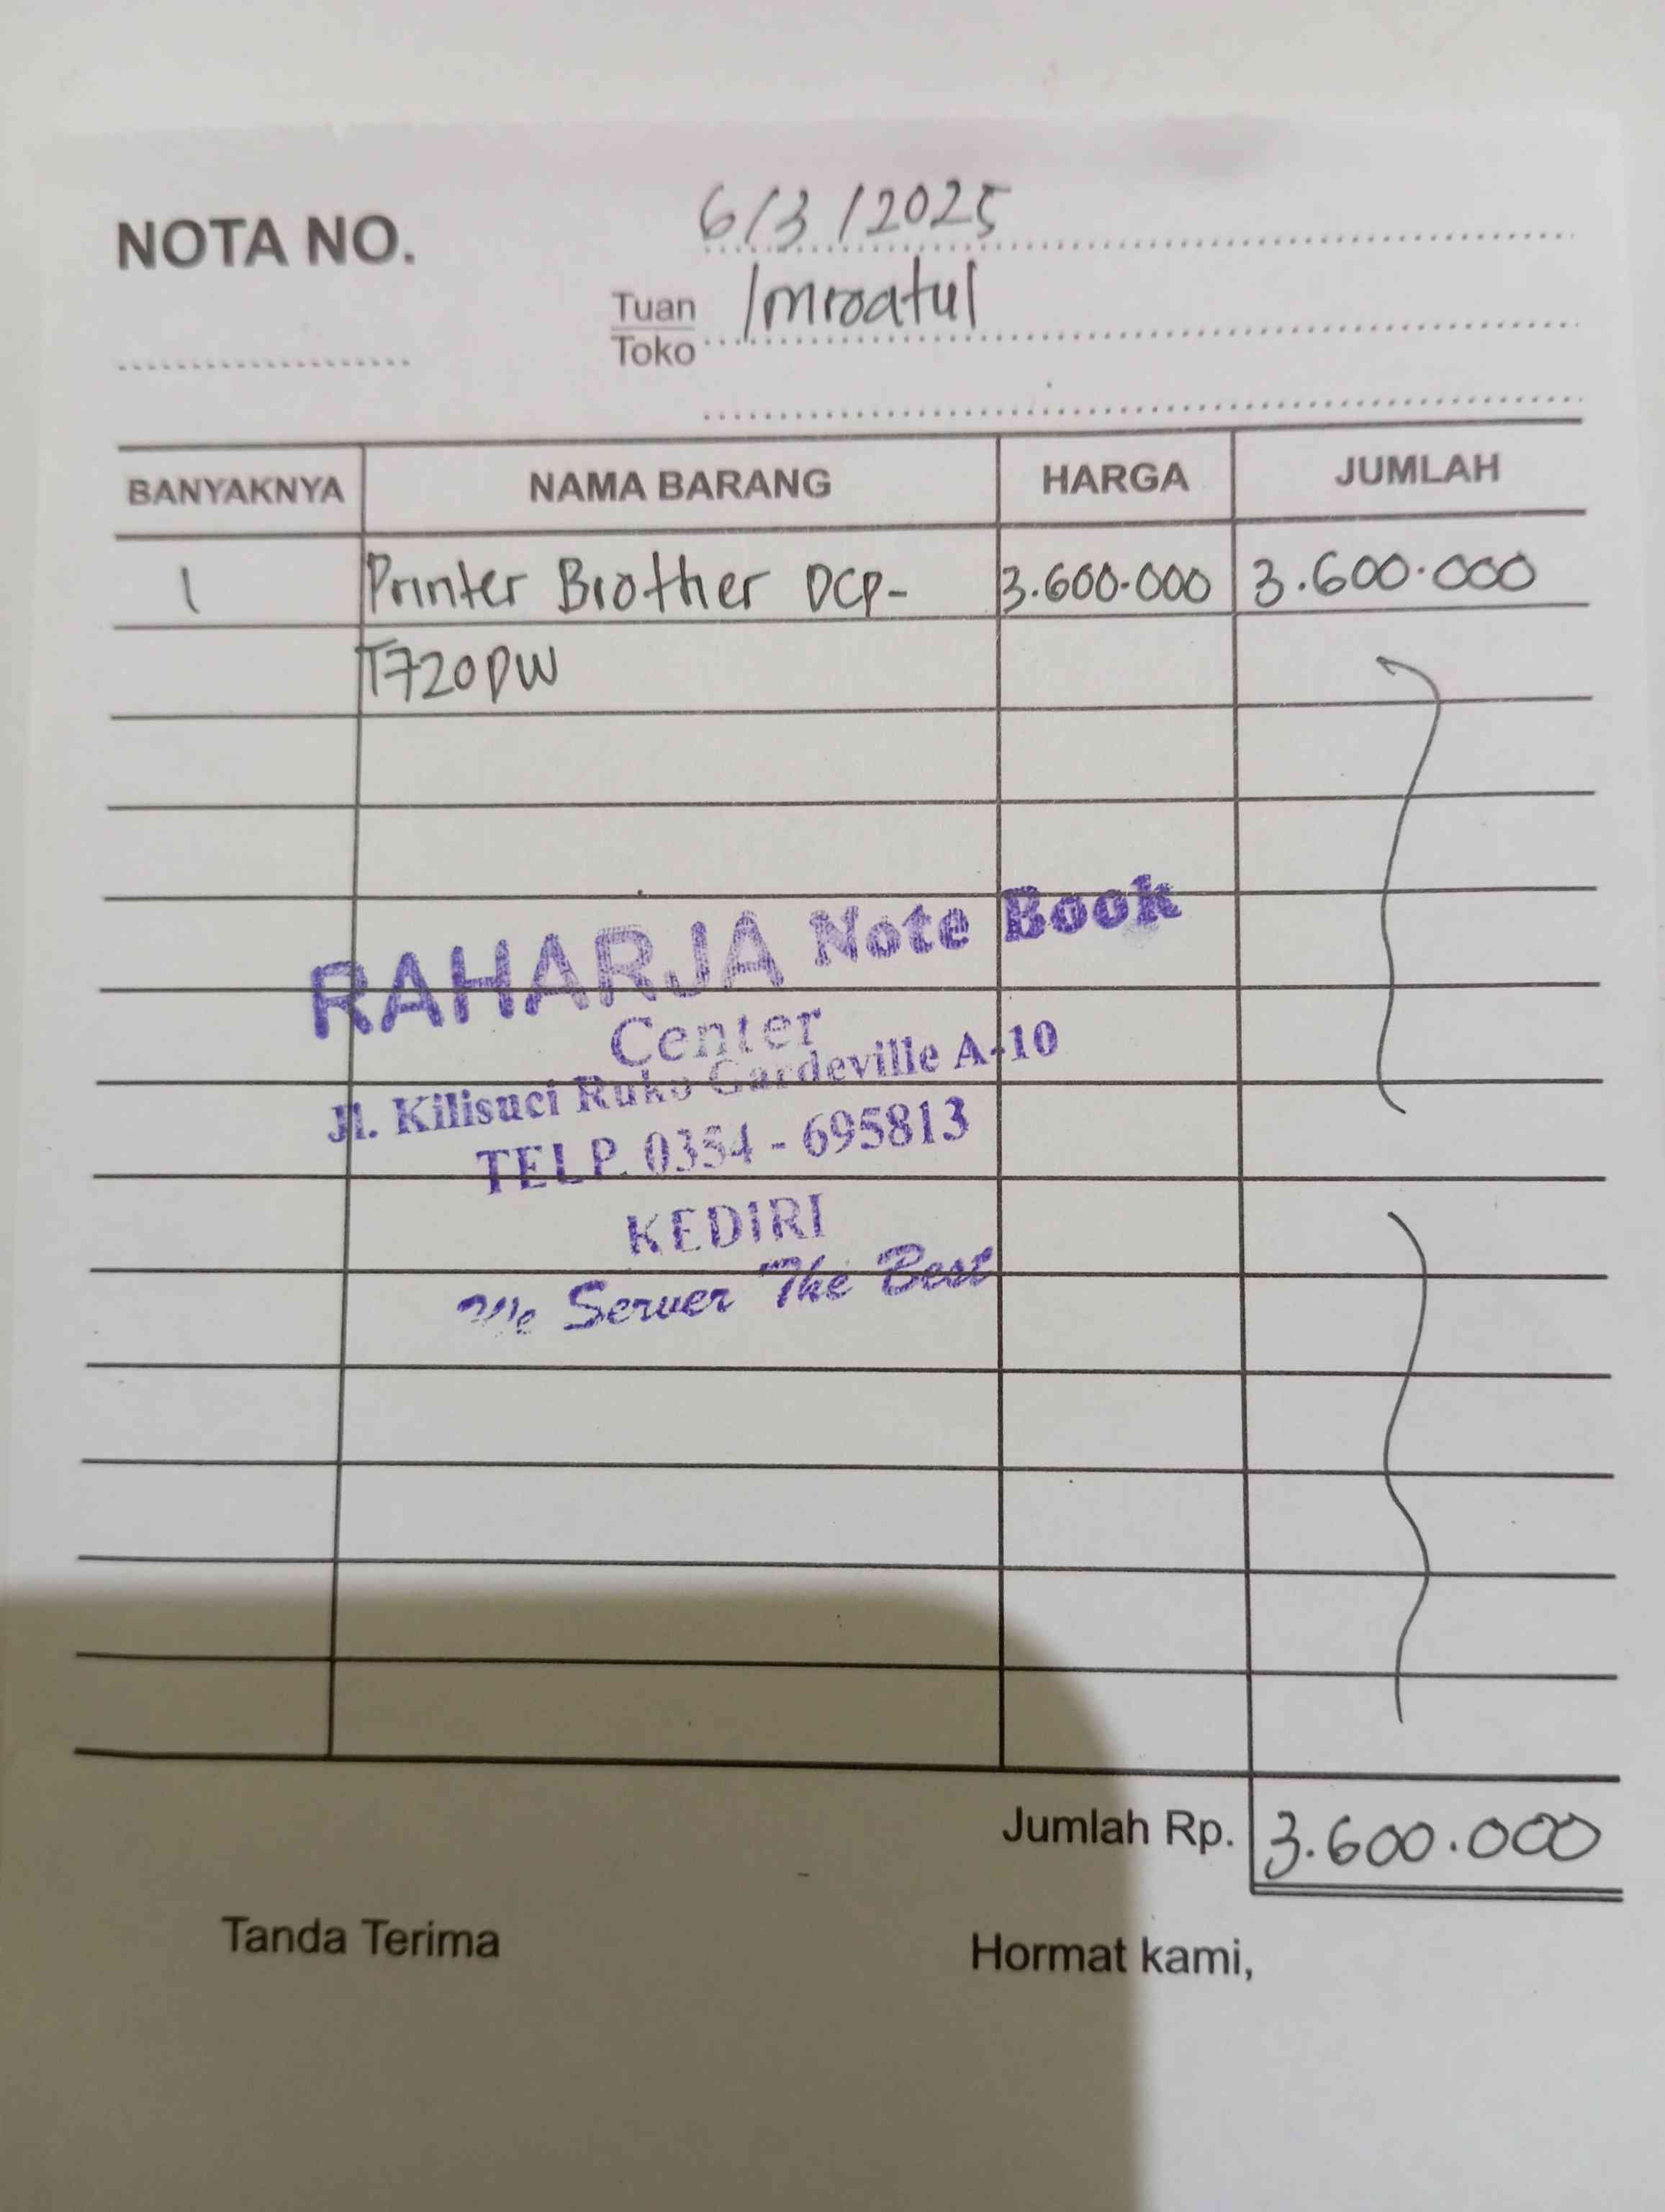 6/3/2025
NOTA NO.
Tuan Imroatul
Toko
BANYAKNYA NAMA BARANG HARGA JUMLAH
1 Printer Brother DCP- 3.600.000 3.600.000
T720DW
RAHARJA Note Book
Center
Jl. Kilisuci Ruko Gardeville A-10
TELP. 0354 - 695813
KEDIRI
We Server The Best
Jumlah Rp. 3.600.000
Tanda Terima Hormat kami,